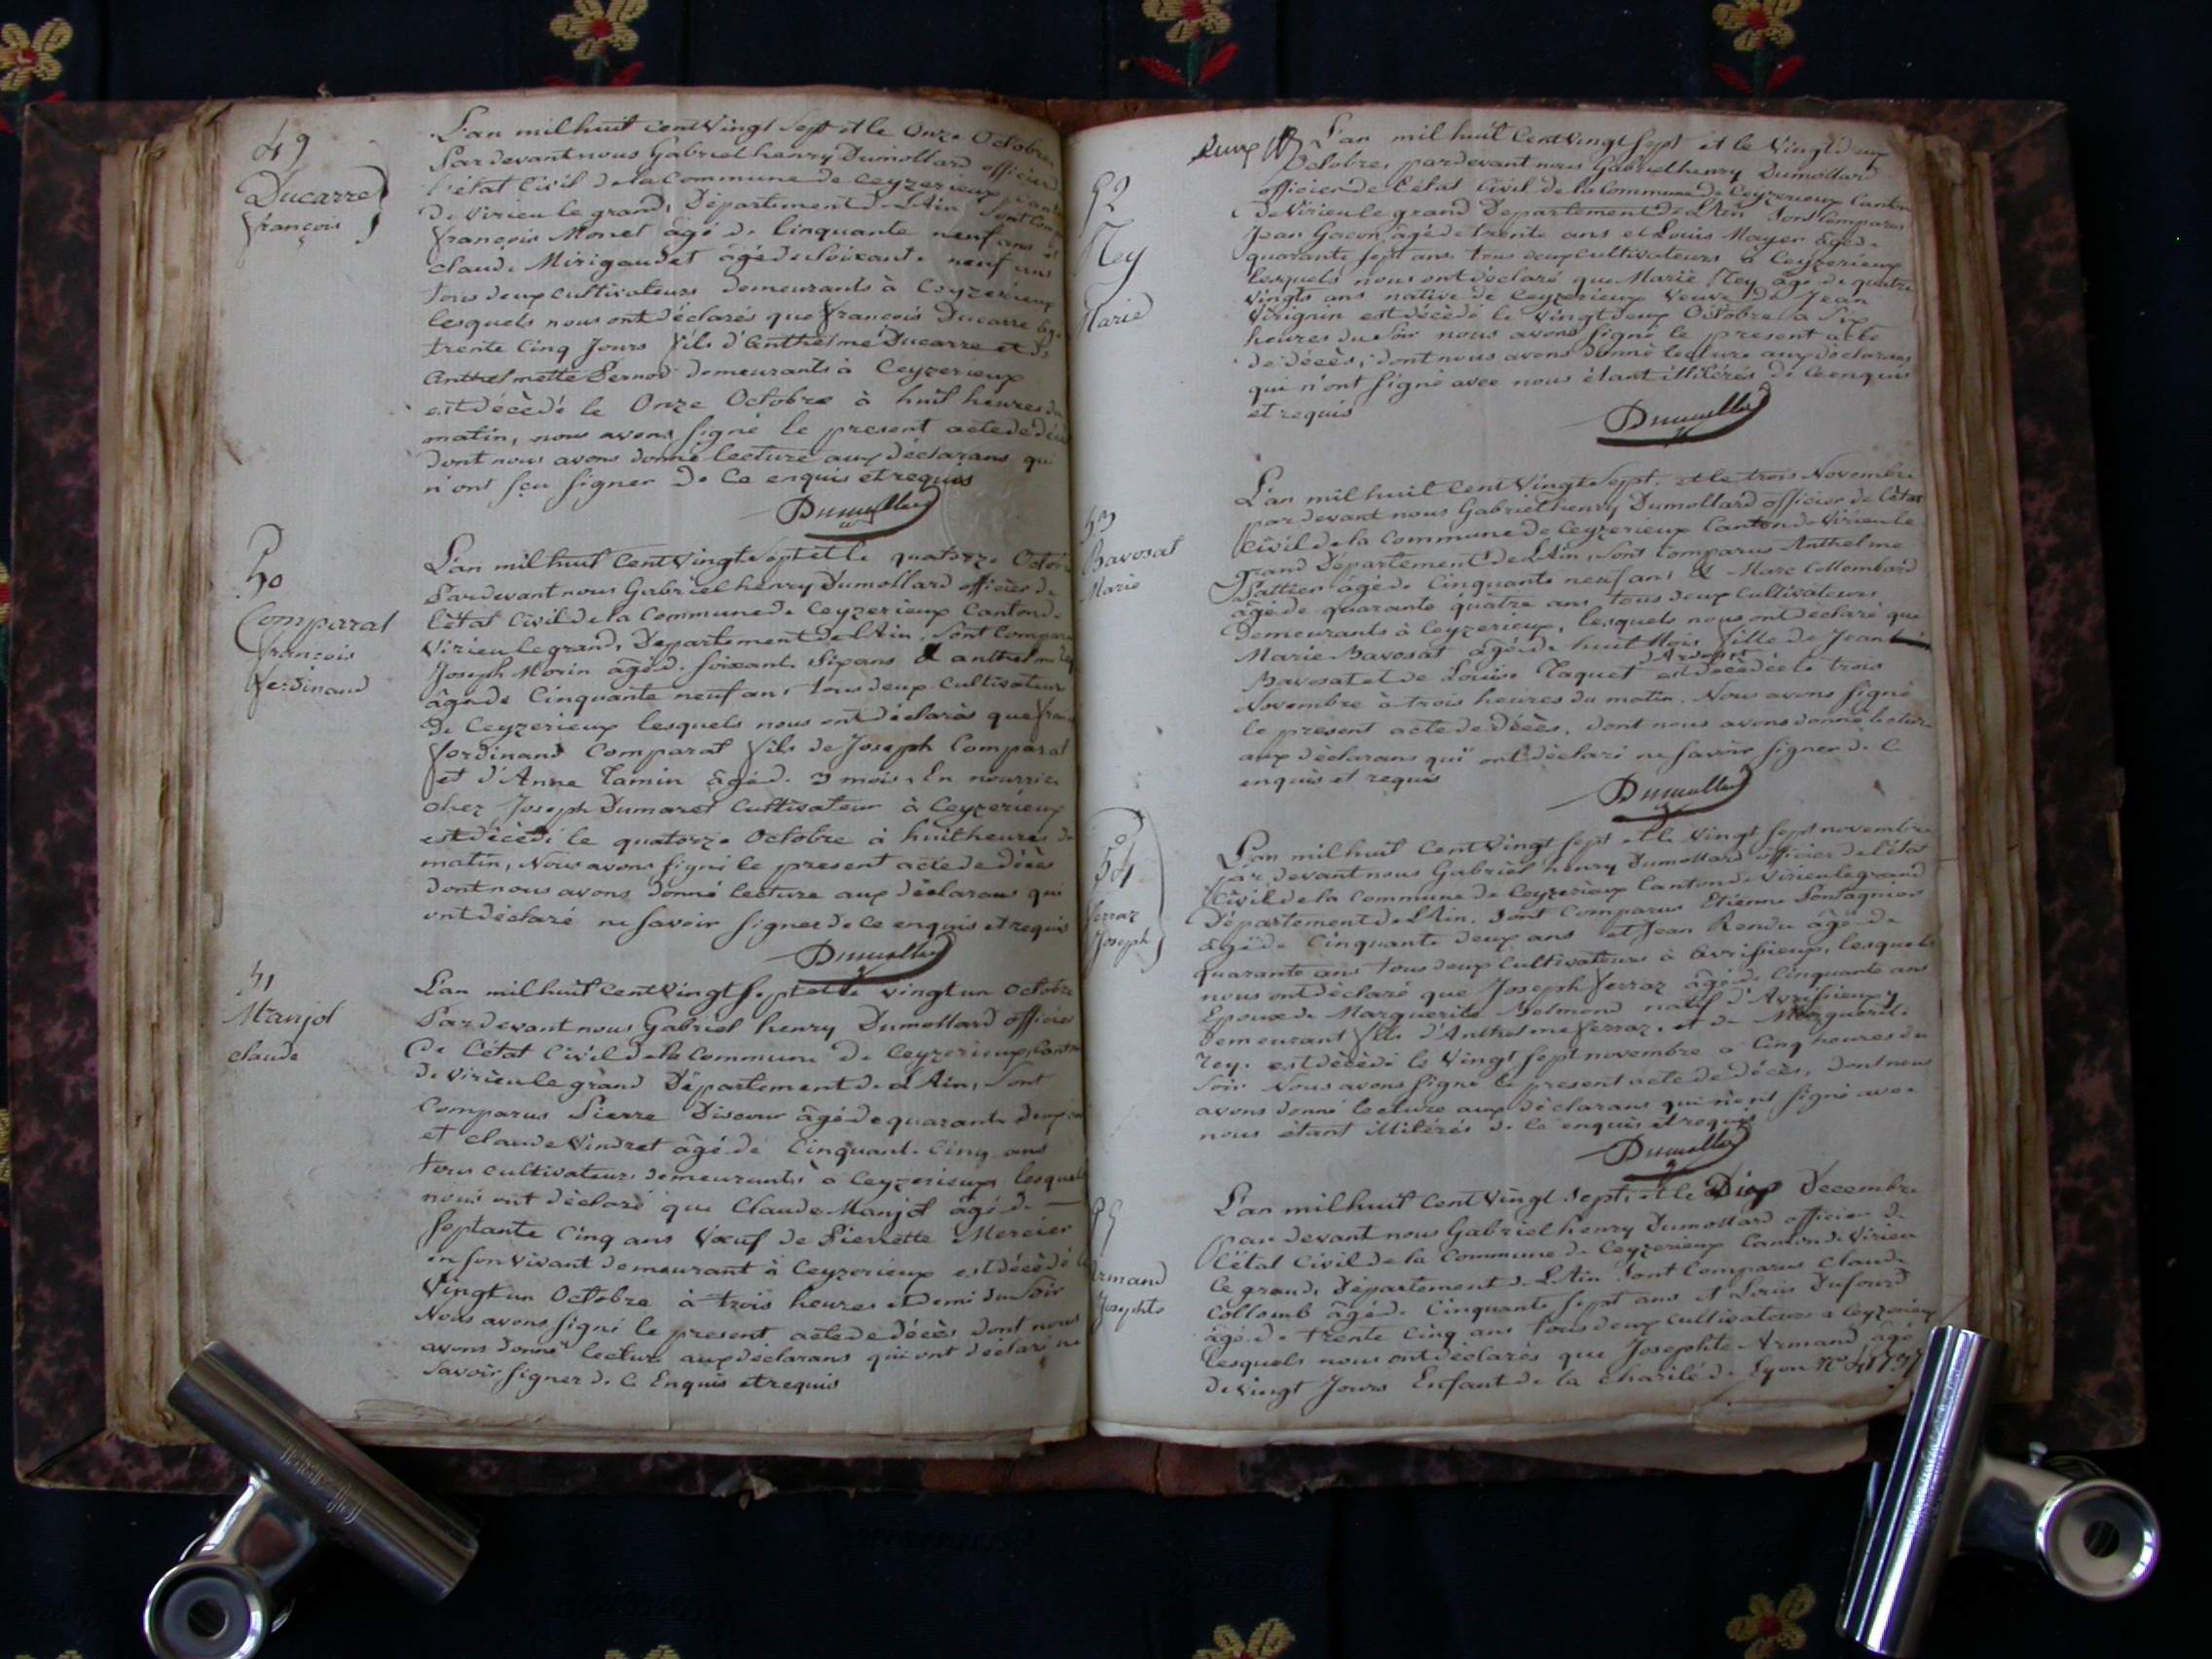 49
Ducarre
françois
L'an mil huit cent vingt sept et le Onze Octobre
Pardevant nous Gabriel henry Dumollard officier
l'état Civil de la Commune de Ceyzerieux
de Virieu le grand, Département de L'Ain Sont
françois Monet âgé de Cinquante neuf ans et
claude Mirigaudet âgé de Soixante neuf ans
tous deux cultivateurs demeurants à Ceyzerieux
lesquels nous ont déclarés que françois Ducarre âgé
trente Cinq Jours fils d'Anthelme Ducarre et de
Anthelmette Pernod demeurants à Ceyzerieux
est décédé le Onze Octobre à huit heures du
matin, nous avons signé le present acte de décès
dont nous avons donné lecture aux déclarans qui
n'ont sçu signer de Ce enquis et requis
Dumollard
50
Comparat
françois
ferdinand
L'an mil huit cent vingt Sept et le quatorze Octobre
Pardevant nous Gabriel henry Dumollard officier de
l'état Civil de la Commune de Ceyzerieux Canton de
Virieu le grand, Departement de l'Ain, Sont Comparu
Joseph Morin âgé de soixante Six ans & anthelme
âgé de Cinquante neuf ans tous deux Cultivateurs
de Ceyzerieux lesquels nous ont déclarés que
ferdinand Comparat fils de Joseph Comparat
et d'Anne Tamin âgé de 3 mois, En nourrice
chez Joseph Dumaret Cultivateur à Ceyzerieux
est décédé le quatorze Octobre à huit heures du
matin, Nous avons signé le present acte de décès
dont nous avons donné lecture aux déclarans qui
ont déclaré ne savoir signer de Ce enquis et requis
Dumollard
51
Manjot
claude
L'an mil huit cent vingt sept et le vingt un Octobre
Pardevant nous Gabriel henry Dumollard officier
De l'état Civil de la Commune de Ceyzerieux, Canton
de Virieu le grand Département de l'Ain, Sont
Comparus Pierre Discour âgé de quarante deux
et claude Vindret âgé de Cinquante Cinq ans
tous cultivateurs demeurants à Ceyzerieux lesquels
nous ont déclaré que Claude Manjot âgé de
septante Cinq ans Vœuf de Pierrette Mercier
en son vivant demeurant à Ceyzerieux est décédé le
Vingt un Octobre à trois heures et demi du Soir
Nous avons signé le present acte de décès dont nous
avons donné lecture aux déclarans qui ont déclaré ne
savoir signer de Ce Enquis et requis
52
Ney
Marie
L'an mil huit Cent vingt sept et le Vingt deux
Octobre, pardevant nous Gabriel henry Dumollard
officier de l'état Civil de la Commune de Ceyzerieux Canton
de Virieu le grand Departement de L'Ain Sont Comparus
Jean Gacon âgé de trente ans et Louis Mayer âgé de
quarante sept ans, tous deux cultivateurs à Ceyzerieux
lesquels nous ont déclaré que Marie Ney âgé de quatre
vingts ans native de Ceyzerieux Veuve de Jean
Virignin est décédé le Vingt deux Octobre à Six
heures du Soir nous avons signé le present acte
de décès, dont nous avons donné lecture aux déclarans
qui n'ont signé avec nous étant illitérés de Ce enquis
et requis
Dumollard
53
Bavosat
Marie
L'an mil huit cent Vingt Sept, et le trois Novembre
par devant nous Gabriel henry Dumollard officier de l'état
Civil de la Commune de Ceyzerieux Canton de Virieu le
grand Département de L'Ain, sont Comparus Anthelme
Pattier âgé de Cinquante neuf ans & Marc Collombard
âgé de quarante quatre ans tous deux Cultivateurs
Demeurants à Ceyzerieux, lesquels nous ont déclaré que
Marie Bavosat âgé de huit Mois fille de Jean
Bavosat et de Louise Taquet est décédée le trois
Novembre à trois heures du matin. Nous avons signé
le present acte de décès, dont nous avons donné lecture
aux déclarans qui ont déclaré ne savoir signer de C
enquis et requis
Dumollard
54
ferraz
Joseph
L'an mil huit Cent Vingt sept et le Vingt sept novembre
par devant nous Gabriel henry Dumollard officier de l'état
Civil de la Commune de Ceyzerieux Canton de Virieu le grand
Département de L'Ain. Sont Comparus Etienne Pontagnier
âgé de Cinquante deux ans et Jean Rendu âgé de
quarante ans tous deux Cultivateurs à Avrissieux, lesquels
nous ont déclaré que Joseph ferraz âgé de Cinquante ans
Epoux de Marguerite Belmond natif d'Avrissieux y
demeurant fils d'Anthelme ferraz, et de Marguerite
Rey. est décédé le Vingt sept novembre à Cinq heures du
Soir Nous avons signé le present acte de décès, dont nous
avons donné lecture aux déclarans qui n'ont signé avec
nous étant illitérés de Ce enquis et requis
Dumollard
55
Armand
Josephte
L'an mil huit Cent Vingt Sept, et le Dix Decembre
par devant nous Gabriel henry Dumollard officier de
l'état Civil de la Commune de Ceyzerieux Canton de Virieu
le grand, Département de L'Ain sont Comparus Claude
Collomb âgé de Cinquante Sept ans et Louis Dufourd
âgé de trente Cinq ans tous deux cultivateurs à Ceyzerieux
lesquels nous ont déclarés que Josephte Armand âgé
de vingt Jours Enfant de la charité de Lyon N°